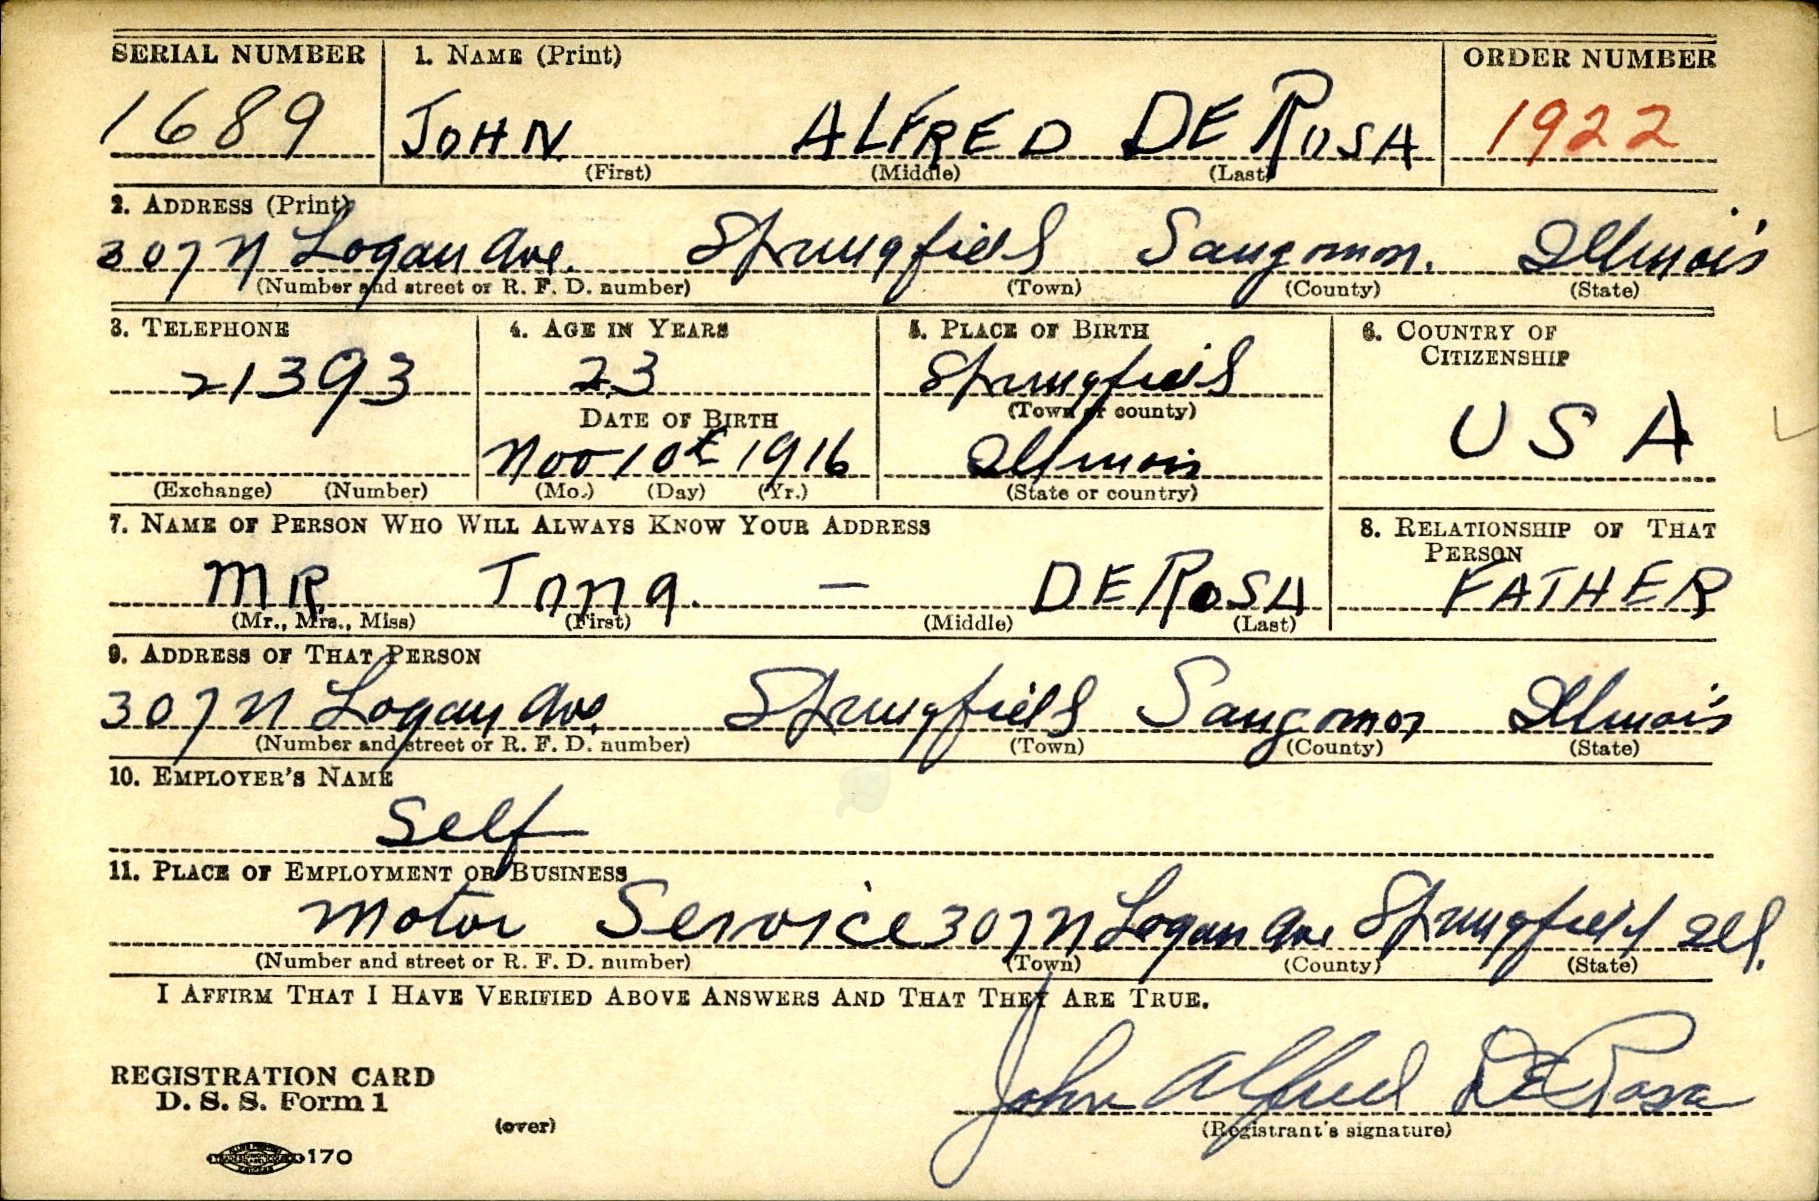 SERIAL NUMBER 1. NAME (Print) ORDER NUMBER
1689 JOHN ALFRED DE ROSA 1922
(First) (Middle) (Last)
2. ADDRESS (Print)
307 N Logan Ave. Springfield Sangamon. Illinois
(Number and street or R. F. D. number) (Town) (County) (State)
3. TELEPHONE 4. AGE IN YEARS 5. PLACE OF BIRTH 6. COUNTRY OF
CITIZENSHIP
21393 23 Springfield
DATE OF BIRTH (Town or county)
USA
Nov 10th 1916 Illinois
(Exchange) (Number) (Mo.) (Day) (Yr.) (State or country)
7. NAME OF PERSON WHO WILL ALWAYS KNOW YOUR ADDRESS 8. RELATIONSHIP OF THAT
PERSON
MR. — DE ROSA FATHER
(Mr., Mrs., Miss) (First) (Middle) (Last)
9. ADDRESS OF THAT PERSON
307 N Logan Ave. Springfield Sangamon Illinois
(Number and street or R. F. D. number) (Town) (County) (State)
10. EMPLOYER'S NAME
Self
11. PLACE OF EMPLOYMENT OR BUSINESS
Motor Service 307 N Logan Ave Springfield Ill.
(Number and street or R. F. D. number) (Town) (County) (State)
I AFFIRM THAT I HAVE VERIFIED ABOVE ANSWERS AND THAT THEY ARE TRUE.
REGISTRATION CARD
D. S. S. Form 1
John Alfred DeRosa
(over) (Registrant's signature)
170